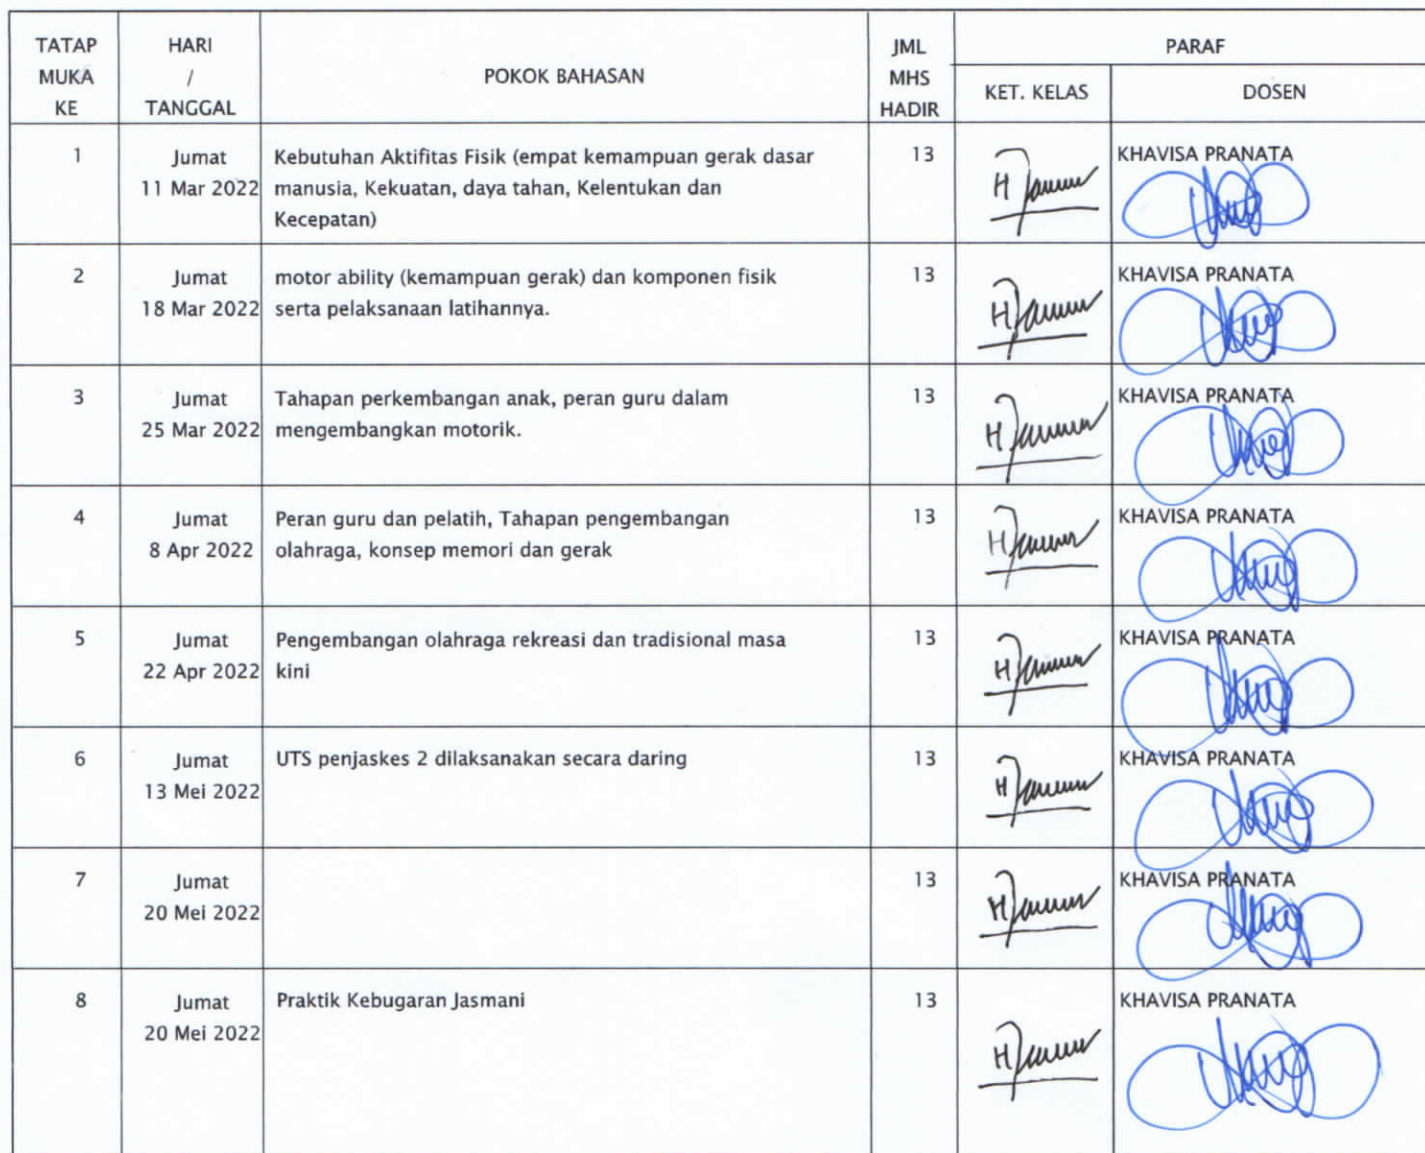 TATAP MUKA KE
HARI / TANGGAL
POKOK BAHASAN
JML MHS HADIR
PARAF
KET. KELAS
DOSEN
1
Jumat
11 Mar 2022
Kebutuhan Aktifitas Fisik (empat kemampuan gerak dasar
manusia, Kekuatan, daya tahan, Kelentukan dan
Kecepatan)
13
KHAVISA PRANATA
2
Jumat
18 Mar 2022
motor ability (kemampuan gerak) dan komponen fisik
serta pelaksanaan latihannya.
13
KHAVISA PRANATA
3
Jumat
25 Mar 2022
Tahapan perkembangan anak, peran guru dalam
mengembangkan motorik.
13
KHAVISA PRANATA
4
Jumat
8 Apr 2022
Peran guru dan pelatih, Tahapan pengembangan
olahraga, konsep memori dan gerak
13
KHAVISA PRANATA
5
Jumat
22 Apr 2022
Pengembangan olahraga rekreasi dan tradisional masa
kini
13
KHAVISA PRANATA
6
Jumat
13 Mei 2022
UTS penjaskes 2 dilaksanakan secara daring
13
KHAVISA PRANATA
7
Jumat
20 Mei 2022
13
KHAVISA PRANATA
8
Jumat
20 Mei 2022
Praktik Kebugaran Jasmani
13
KHAVISA PRANATA